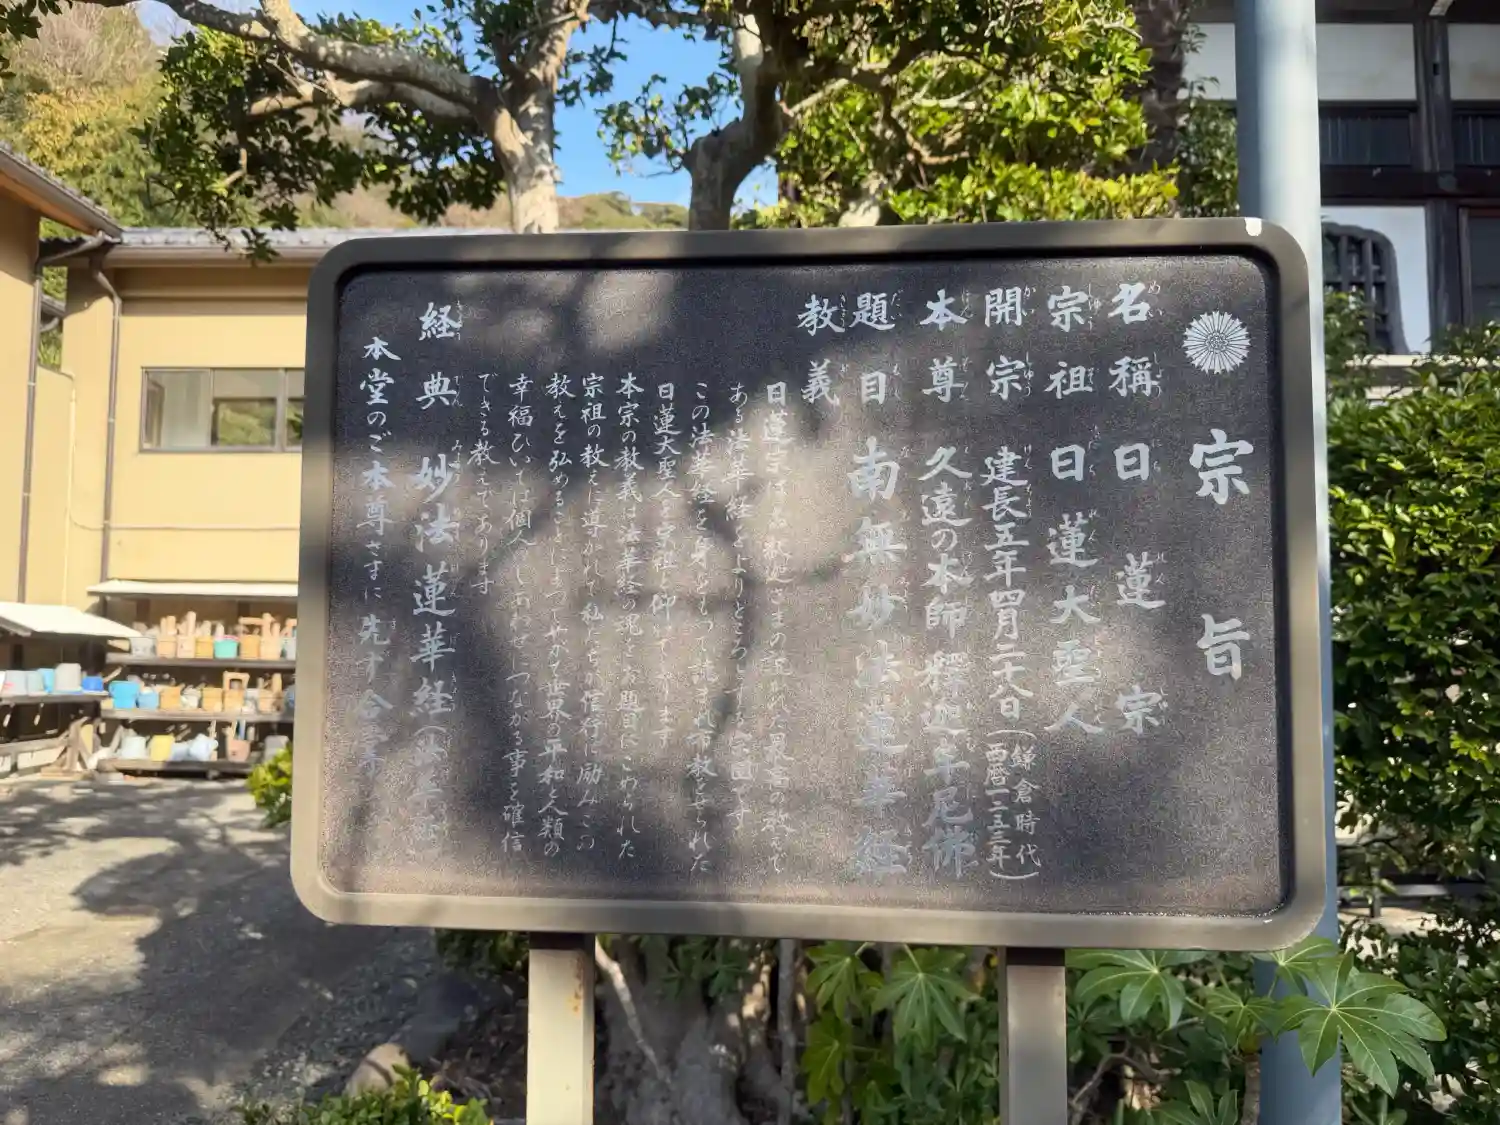 宗旨
名称 日蓮宗
宗祖 日蓮大聖人
開宗 建長五年四月二十八日(鎌倉時代 西暦一二五三年)
本尊 久遠の本師釋迦牟尼佛
題目 南無妙法蓮華経
教義
日蓮宗はお釈迦さまの説かれた最高の教えで
ある法華経をよりどころとする宗団です
この法華経を身をもって読まれ布教せられた
日蓮大聖人を宗祖と仰いでおります
本宗の教義は法華経の魂とお題目にこめられた
宗祖の教えに導かれて私たちが信行に励みこの
教えを弘めることによってやがて世界の平和と人類の
幸福ひいては個人のしあわせにつながる事を確信
できる教えであります
経典 妙法蓮華経(法華経)
本堂のご本尊さまに先ず合掌